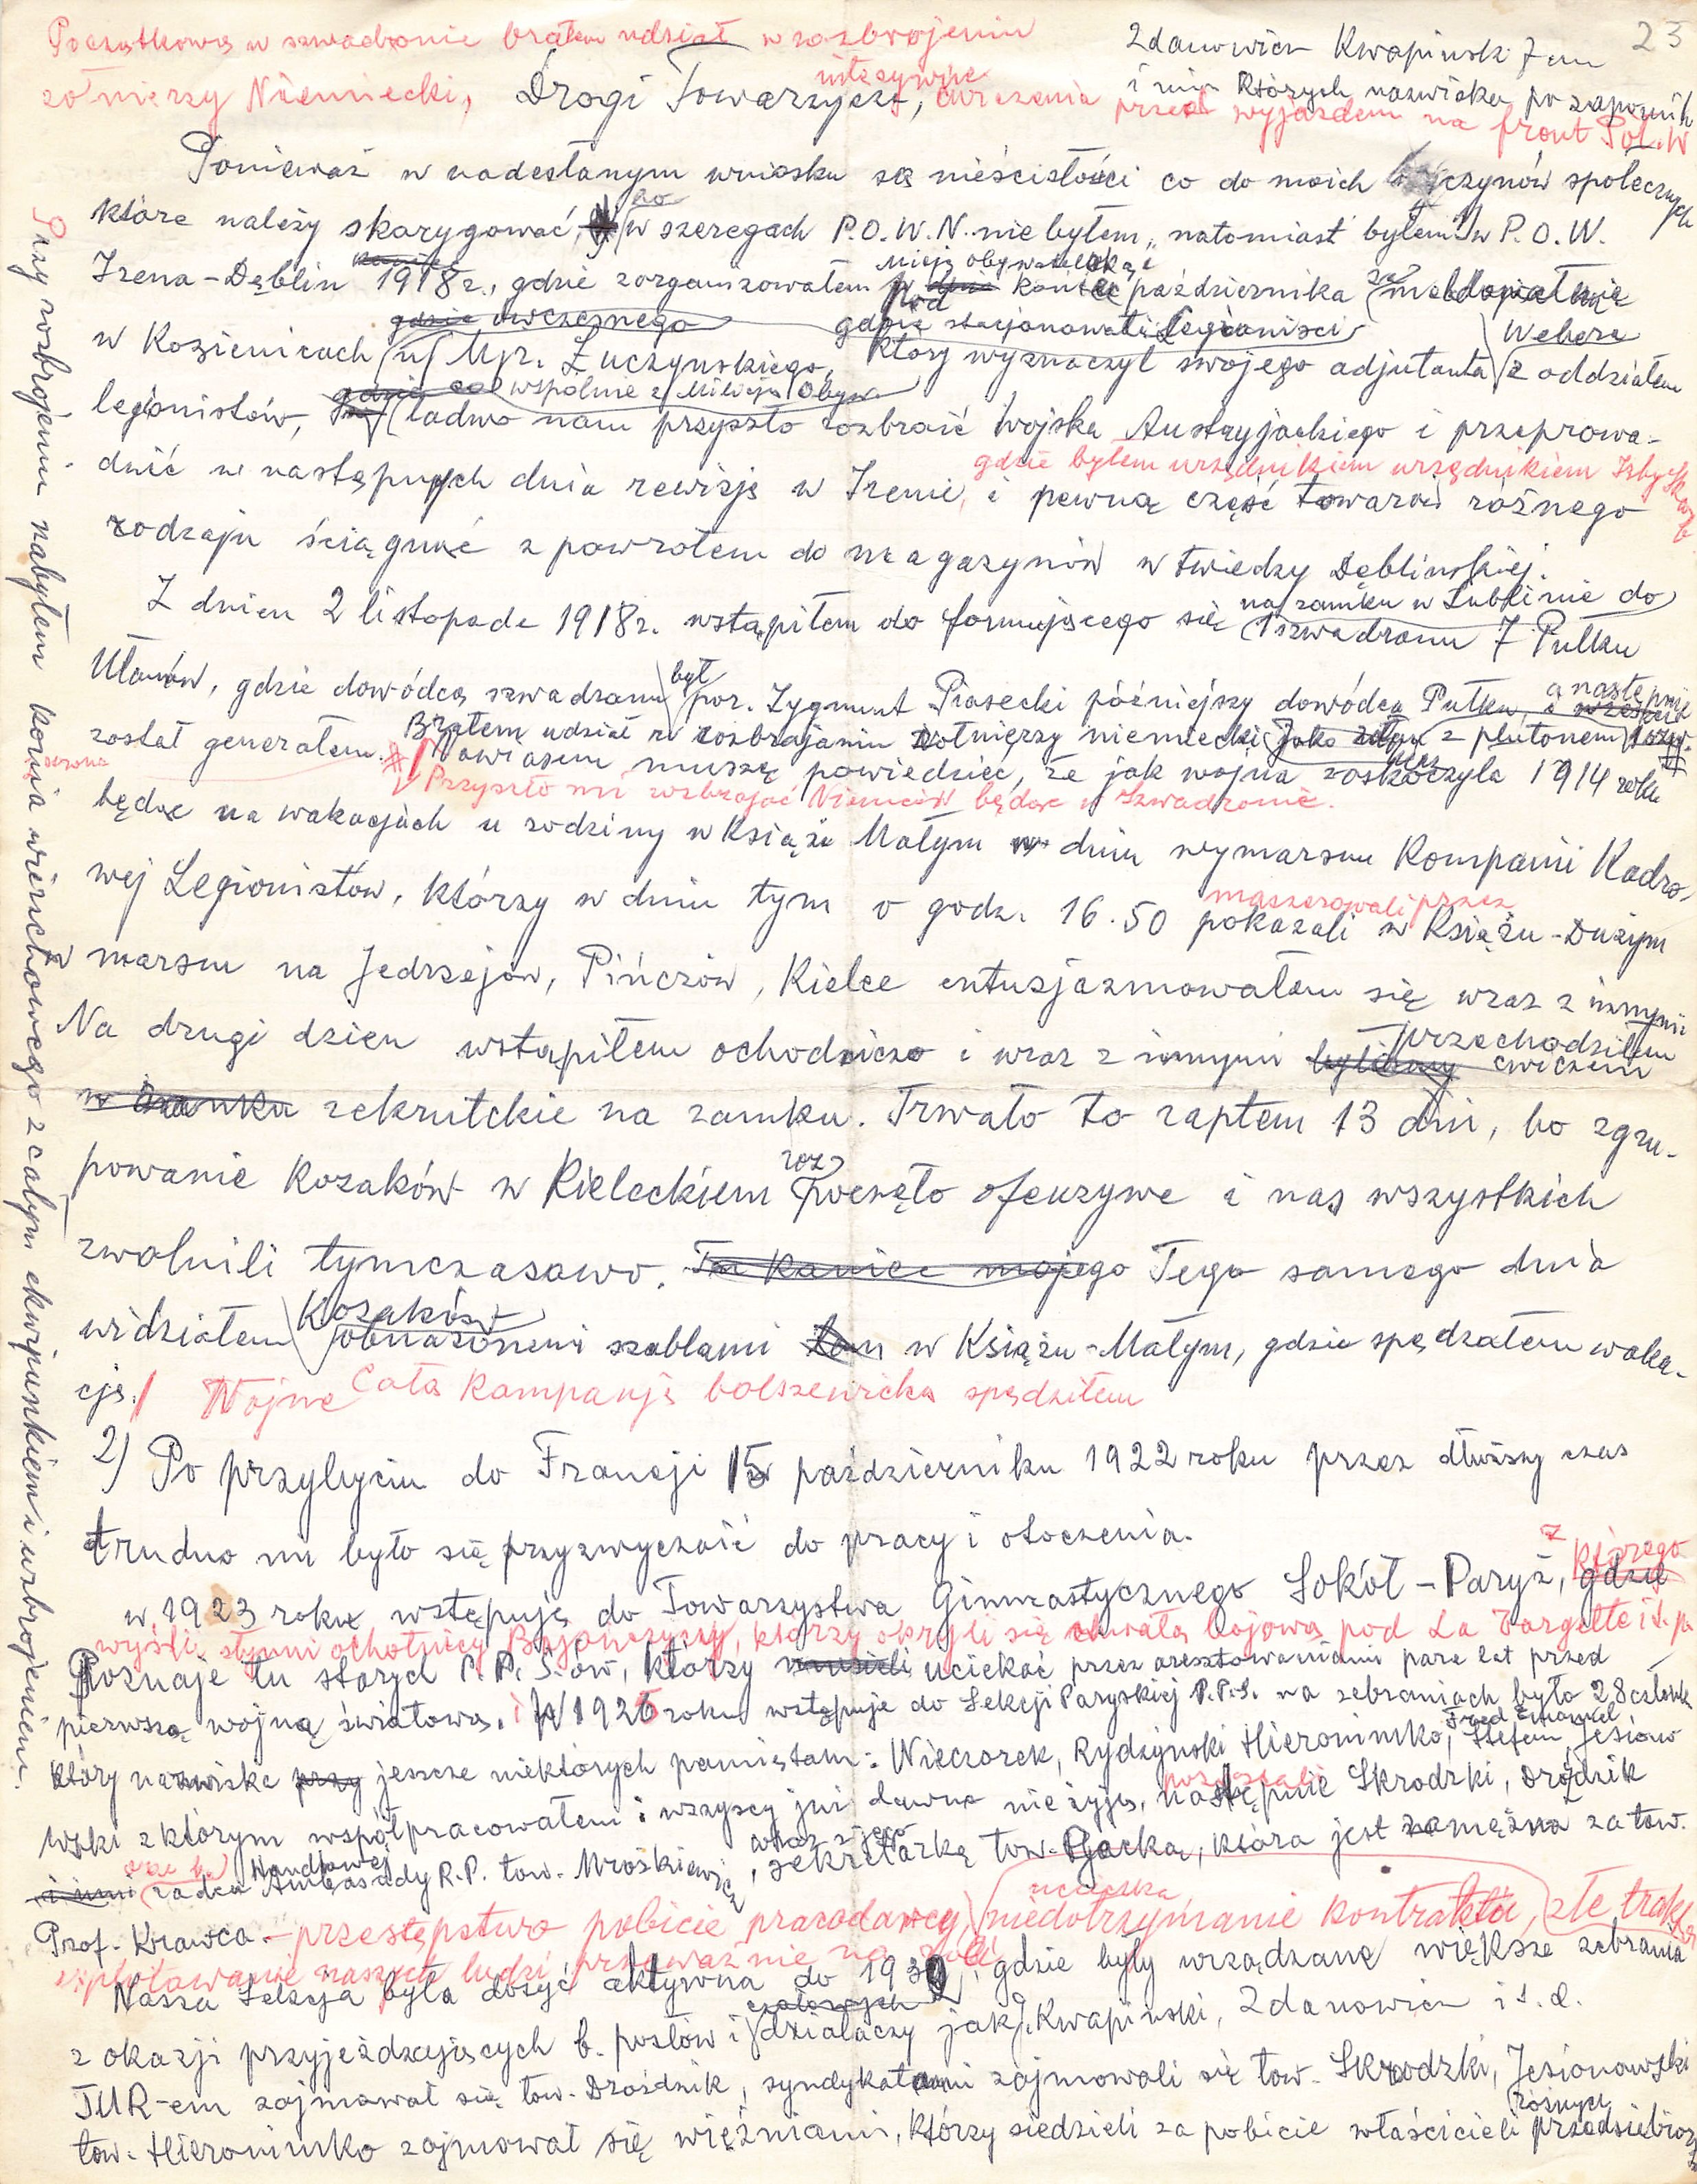 23
Początkową w szwadronie brałem udział w rozbrojeniu
żołnierzy Niemiecki,
intesywne
ćwiczenia przed wyjazdem na front Pol.
Zdanowicz Kwapiński Jan
i inn których nazwiska po zapomn
Drogi Towarzyszo,
Ponieważ w nadesłanym wniosku są nieścisłości co do moich czynów społecznych
które należy skorygować, bo w szeregach P.O.W.N. nie byłem, natomiast byłem w P.O.W.
Irena-Dęblin 1918r., gdzie zorganizowałem Milicję obywatelską pod koniec października
w Kozienicach u Mjr. Łuczyńskiego, gdzie stacjonowali Legioniści
który wyznaczył swojego adjutanta Webera z oddziałem
legionistów, wspólnie z Milicją Obyw ładwo nam przyszło rozbroić Wojska Austryjackiego i przeprowa-
dzić w następnych dnia rewizję w Irenie, gdzie byłem urzędnikiem urzędnikiem Izby Skarb. i pewną część towarów różnego
rodzaju ściągnąć z powrotem do magazynów w twiedzy Dęblinskiej.
Z dniem 2 listopada 1918r. wstąpiłem do formującego się na zamku w Lublinie do 1 szwadronu 7 Pułku
Ułanów, gdzie dowódcą szwadronu był por. Zygmunt Piasecki późniejszy dowódca Pułku, a następnie
został generałem. Brałem udział w rozbrajaniu żołnierzy niemiecki z plutonem
Nawiasem muszę powiedzieć, że jak wojna zaskoczyła 1914 roku
Przyszło mi rozbrajać Niemców będąc w Szwadronie.
będąc na wakacjach u rodziny w Książu Małym w dniu wymarszu Kompanii Kadro-
wej Legionistów, którzy w dniu tym o godz. 16.50 pokazali maszerowali przez w Książu-Dużym
w marszu na Jedrzejów, Pińczów, Kielce entuzjazmowałem się wraz z innymi
Na drugi dzien wstąpiłem ochodniczo i wraz z innymi przechodziłem ćwiczeni
rekrutckie na zamku. Trwało to raptem 13 dni, bo zgru-
powanie Kozaków w Kieleckiem rozpoczęło ofenzywe i nas wszystkich
zwolnili tymczasowo. Tego samego dnia
widziałem Kozaków obnażonemi szablami w Książu-Małym, gdzie spędzałem waka-
cje. Wojne Całą Kampanję bolszewicką spędziłem
2) Po przybyciu do Francji 15 październiku 1922 roku przez dłuższy czas
trudno mi było się przyzwyczaić do pracy i otoczenia.
w 1923 roku wstępuję do Towarzystwa Gimnastycznego Sokół-Paryż, z którego
wyśli słynni ochotnicy Bajończycy, którzy okryli się chwałą bojową pod La Targette i t. p.
Poznaje tu starych P.P.S.ów, którzy musieli uciekać przez aresztowaniami pare lat przed
pierwszą wojną światową. i W 1926 roku wstępuje do Sekcji Paryskiej P.P.S. na zebraniach było 28 członk
który nazwiska jeszcze niektórych pamiętam: Wieczorek, Rydzyński Hieronimko, Stefan Jesiono
wski z którym współpracowałem i wszyscy już dawno nie żyją, następnie pozostali Skrodzki, Droździk
radca Handlowej Ambasady R.P. tow. Mroskiewicz, wraz z jego sekretarką tow. Gacką, która jest zamężna za tow.
Prof. Krawca. - przestępstwo pobicie pracodawcy, ucieczka niedotrzymanie kontraktu, złe trakt
exploatowanie naszych ludzi przeważnie na roli
Nasza Sekcja była dosyć aktywna do 1939, gdzie były urządzane większe zebrania
z okazji przyjeżdzających b. posłów i działaczy jak J. Kwapiński, Zdanowicz i t. d.
TUR-em zajmował się tow. Droździk, syndykatami zajmowali się tow. Skrodzki, Jesionowski
tow. Hieronimko zajmował się więźniami, którzy siedzieli za pobicie właścicieli różnych przedsiębior
Przy rozbrojeniu nabyłem konia wierzchowego z całym ekwipunkiem i uzbrojeniem.